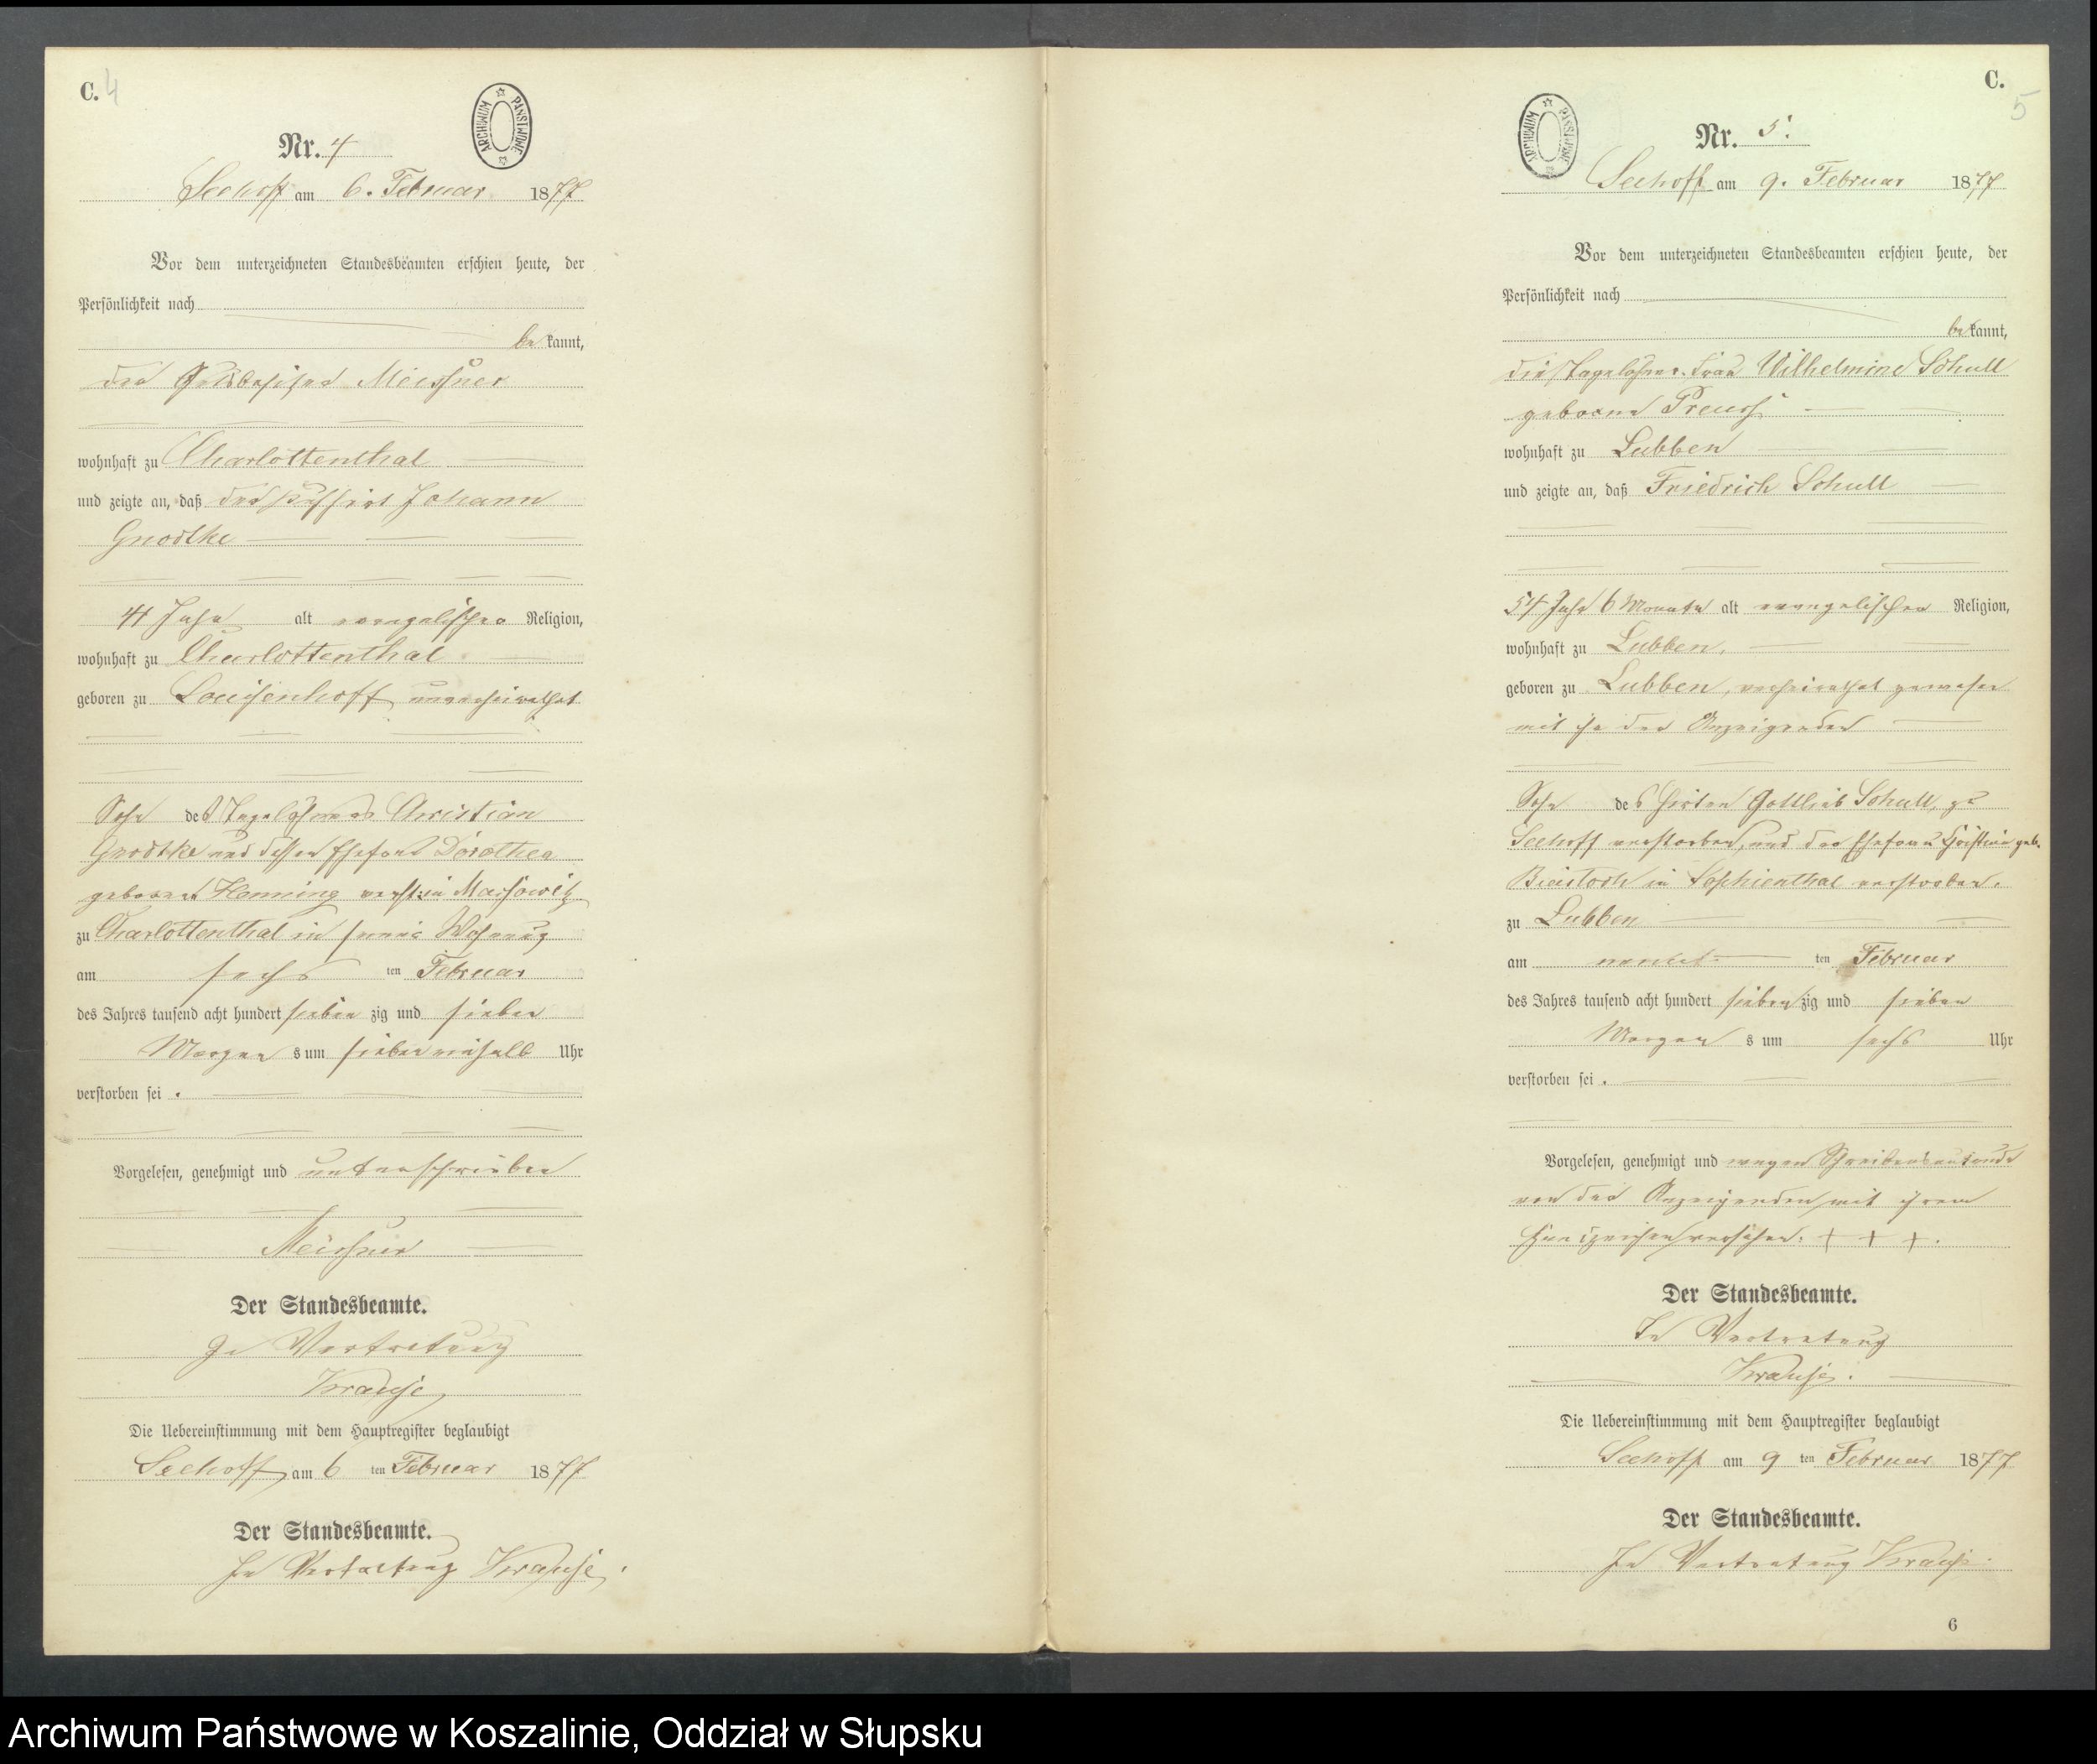 C. 4
ARCHIWUM PAŃSTWOWE
Nr. 4
Seehoff am 6. Februar 1877
Vor dem unterzeichneten Standesbeamten erschien heute, der
Persönlichkeit nach
be kannt,
der Gutsbesitzer Meissner
wohnhaft zu Charlottenthal
und zeigte an, daß der Johann
Gnodtke
Jahr alt evangelischer Religion,
wohnhaft zu Charlottenthal
geboren zu Louisenhoff, unverheirathet
Sohn des Tagelöhners Christian
Gnodtke und dessen Ehefrau Dorothea
geborene Henning verst: in
zu Charlottenthal in seiner Wohnung
am sechs ten Februar
des Jahres tausend acht hundert sieben zig und sieben
Morgen s um sieben einhalb Uhr
verstorben sei .
Vorgelesen, genehmigt und unterschrieben
Meissner
Der Standesbeamte.
In Vertretung
Krause
Die Uebereinstimmung mit dem Hauptregister beglaubigt
Seehoff am 6 ten Februar 1877
Der Standesbeamte.
In Vertretung Krause.
C.
5
ARCHIWUM PAŃSTWOWE
Nr. 5.
Seehoff am 9. Februar 1877
Vor dem unterzeichneten Standesbeamten erschien heute, der
Persönlichkeit nach
be kannt,
die Tagelöhner-Frau Wilhelmine Schull
geborne Preuss
wohnhaft zu Lubben
und zeigte an, daß Friedrich Schull
54 Jahr 6 Monate alt evangelischer Religion,
wohnhaft zu Lubben.
geboren zu Lubben, verheirathet gewesen
mit ihr der Anzeigenden
Sohn des Hirten Gottlieb Schull, zu
Seehoff verstorben, und der Ehefrau Christine geb.
in Sophienthal verstorben.
zu Lubben
am neunten ten Februar
des Jahres tausend acht hundert sieben zig und sieben
Morgen s um sechs Uhr
verstorben sei .
Vorgelesen, genehmigt und wegen Schreibensunkunde
von der Anzeigenden mit ihrem
Handzeichen versehen. + + +.
Der Standesbeamte.
In Vertretung
Krause.
Die Uebereinstimmung mit dem Hauptregister beglaubigt
Seehoff am 9 ten Februar 1877
Der Standesbeamte.
In Vertretung Krause.
6
Archiwum Państwowe w Koszalinie, Oddział w Słupsku